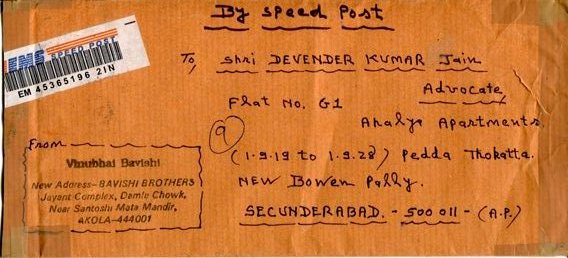 By Speed Post
EMS SPEED POST
EM 45365196 2IN
To, Shri DEVENDER KUMAR Jain
Advocate,
Flat No. G1
Ahalya Apartments.
9
(1-9-19 to 1-9-28) Pedda Thokatta.
NEW Bowen Pally.
SECUNDERABAD. - 500 011 - (A.P.)
From
Vinubhai Bavishi
New Address-BAVISHI BROTHERS
Jayant Complex, Damle Chowk,
Near Santoshi Mata Mandir,
AKOLA-444001